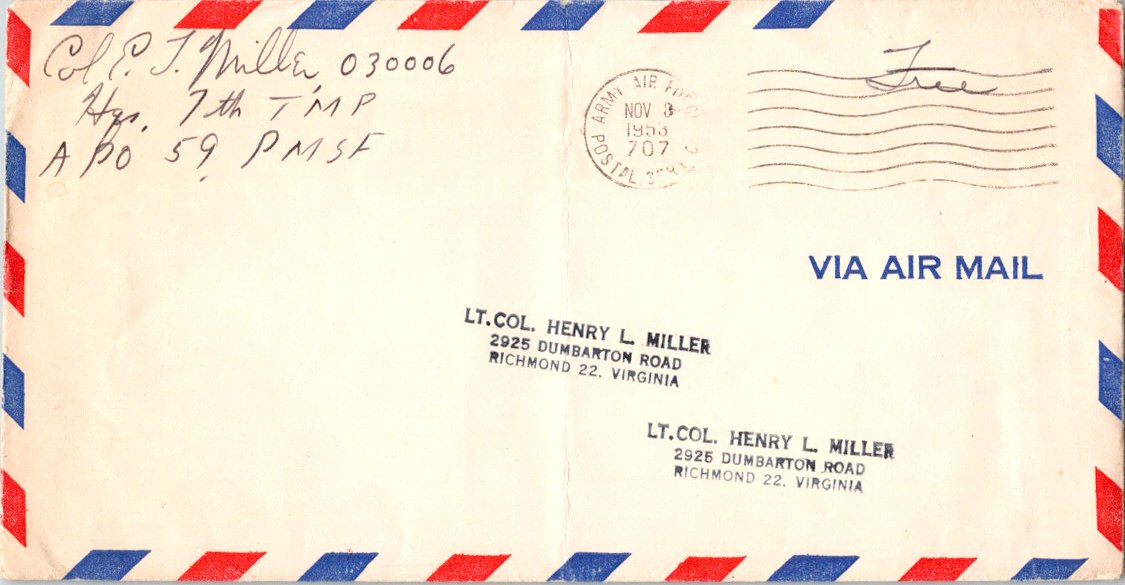 Col E. T. Miller 030006
Hqs. 7th TMP
APO 59, PMSF
Free
ARMY AIR FORCE
NOV 3
1953
707
POSTAL
VIA AIR MAIL
LT.COL. HENRY L. MILLER
2925 DUMBARTON ROAD
RICHMOND 22. VIRGINIA
LT.COL. HENRY L. MILLER
2925 DUMBARTON ROAD
RICHMOND 22. VIRGINIA